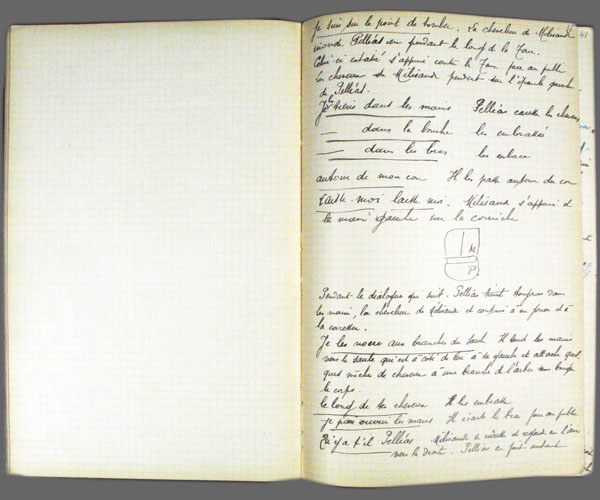 je suis sur le point de tomber. La chevelure de Mélisande
inonde Pelléas en pendant le long de la Tour.
Celui-ci extasié s'appuie contre la Tour face au public
Les cheveux de Mélisande pendent sur l'épaule gauche
de Pelléas.
Je les tiens dans les mains Pelléas caresse les cheveux
— dans la bouche les embrasse
— dans les bras. les enlace
autour de mon cou Il les passe autour du cou
Laisse-moi laisse moi. Mélisande s'appuie d
la main gauche sur la corniche
M
P.
Pendant le dialogue qui suit. Pelléas tient toujours dans
les mains, la chevelure de Mélisande et continue à en jouer et à
la caresser.
Je les noue aux branches du saule Il tend les mains
vers le saule qui est à côté de lui à sa gauche et attache quel
ques mèches de cheveux à une branche de l'arbre sans bouger
le corps.
le long de tes cheveux Il les embrasse
je puis ouvrir les mains Il écarte les bras face au public
Qu'y a t'il Pelléas Mélisande se redresse et regarde en l'air
vers la droite. Pelléas en fait autant
41